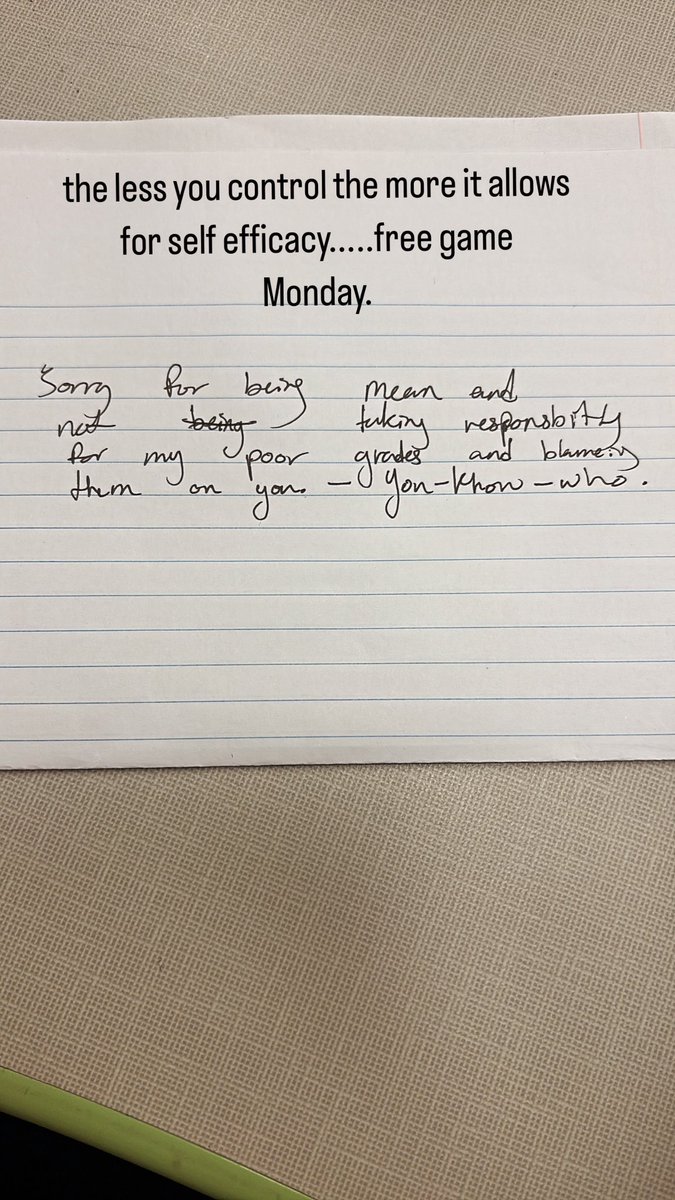 the less you control the more it allows
for self efficacy.....free game
Monday.
Sorry for being mean and
not being taking responsbitly
for my poor grades and blameing
them on you. – You-know-who.